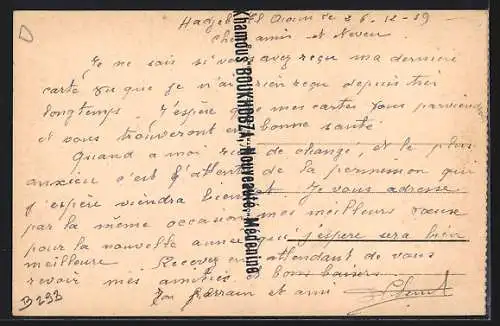 Hadjeb El Aïoun le 26-12-39
Cher ami et Neveu
Je ne sais si vous avez reçu ma dernière
carte vu que je n'ai rien reçu depuis très
longtemps. J'espère que mes cartes vous parviendront
et vous trouveront en bonne santé.
Quand a moi rien de changé, et le plus
anxieux c'est l'attente de la permission qui
j'espère viendra bientôt. Je vous adresse
par la même occasion mes meilleurs vœux
pour la nouvelle année que j'espère sera bien
meilleure. Recevez en attendant de vous
revoir mes amitiés bons baisers.
Ton Parrain et ami
B293
Khamous BOUKHOBZA, Nouveauté - Médenine